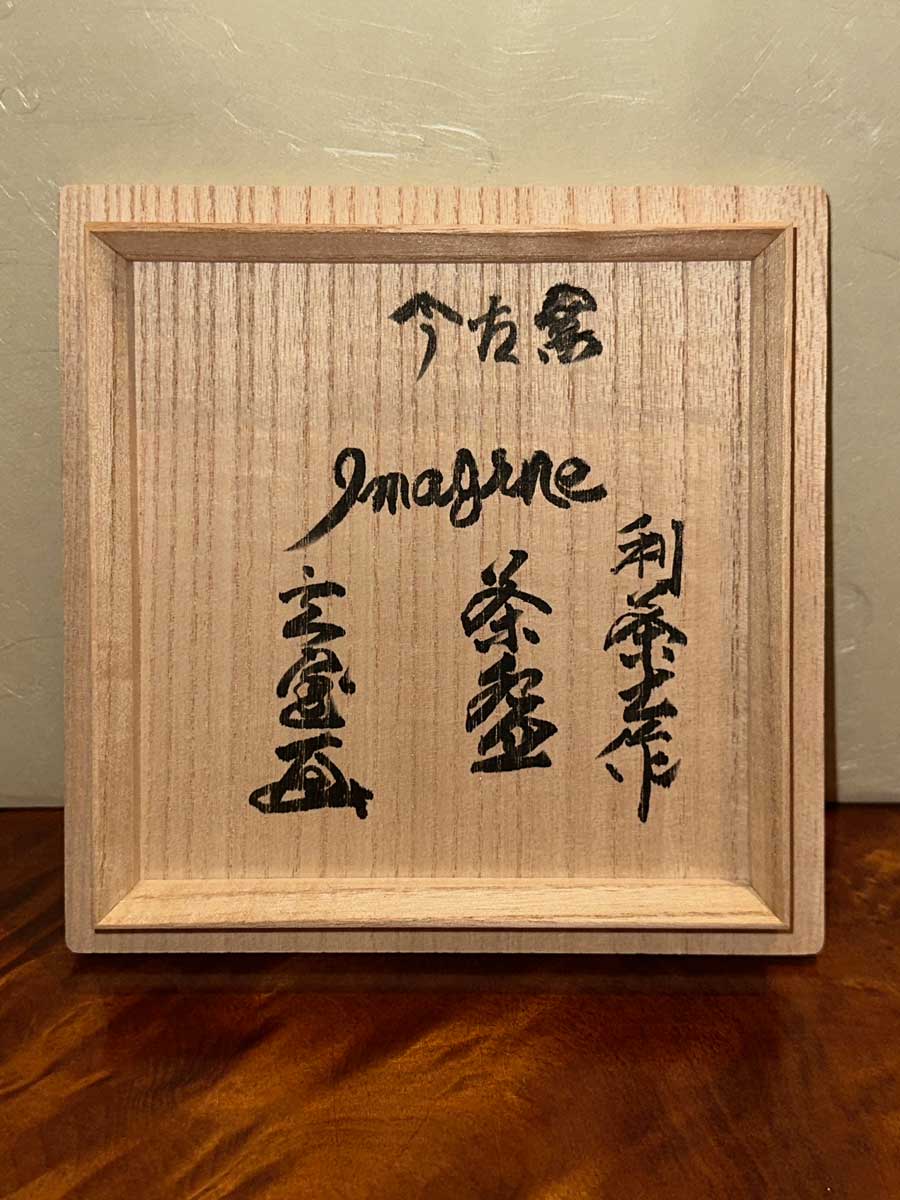 今古窯
Imagine
利茶土作
茶盌
玄室画